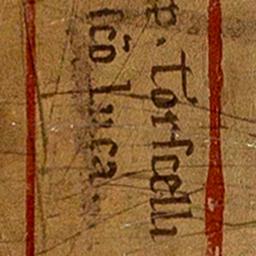 p. Torscelli
sco Luca